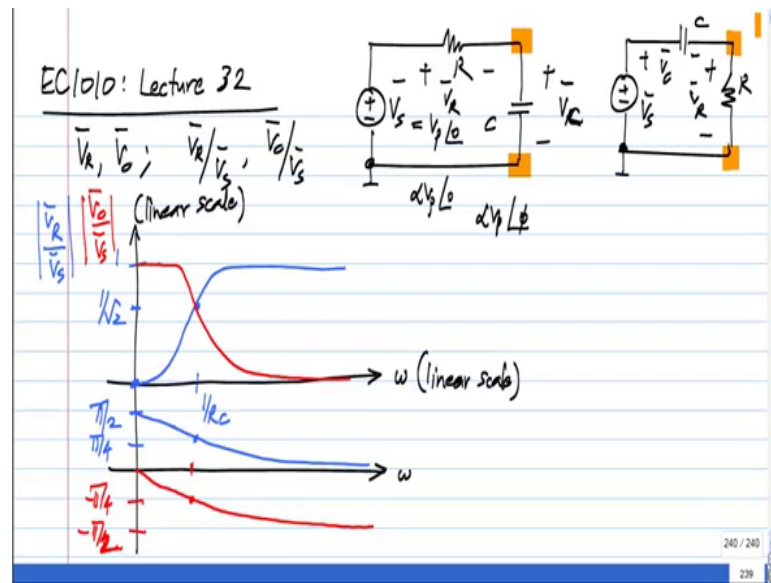 EC1010: Lecture 32
V̅R, V̅0; V̅R/V̅S, V̅0/V̅S
+ R −
V̅R
V̅S
= Vp∠0
C
+
V̅C
−
αVp∠0
αVp∠ϕ
C
+ V̅C −
V̅S
+
V̅R
−
R
|V̅R/V̅S| |V̅0/V̅S| (linear scale)
1
1/√2
ω (linear scale)
1/RC
π/2
π/4
ω
-π/4
-π/2
240 / 240
239